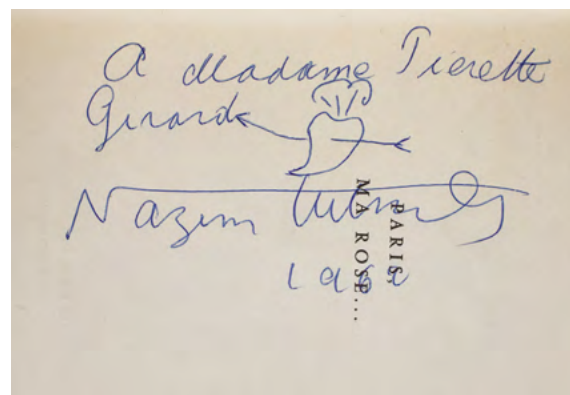 A Madame Pierette
Girard
Nazim Hikmet
1962
PARIS,
MA ROSE...